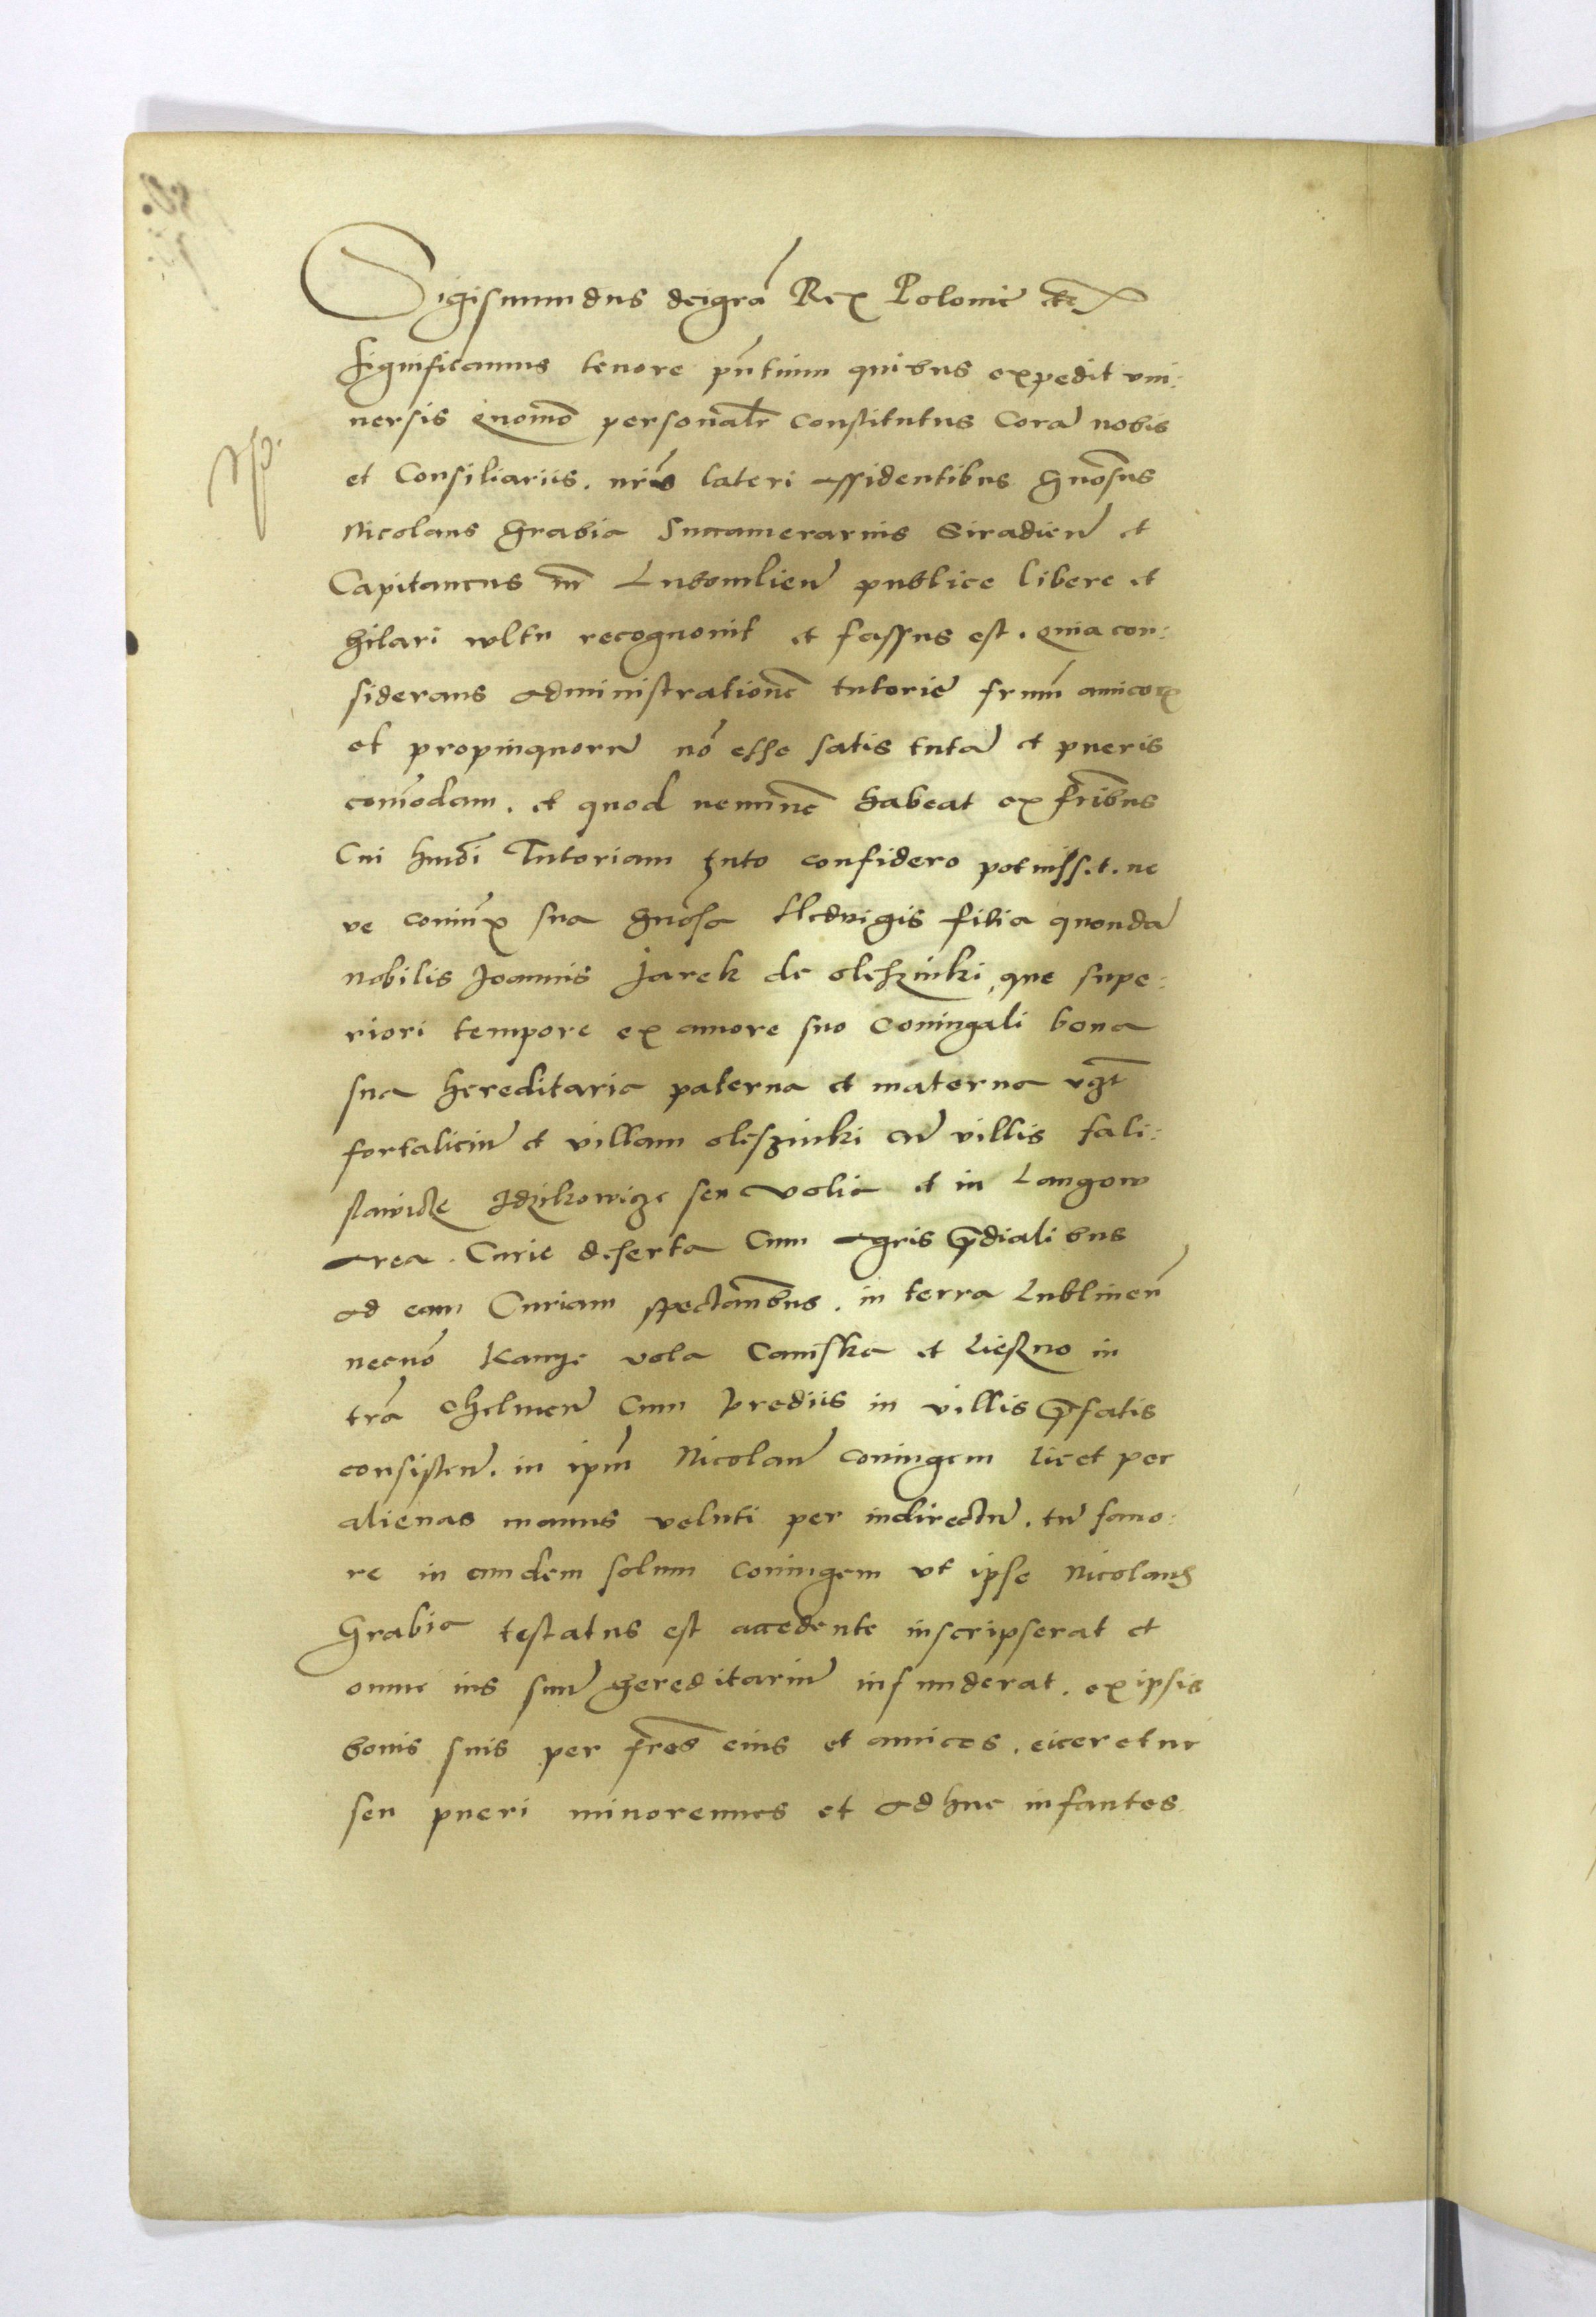 Sigismundus dei grã Rex Polonie etc
significamus tenore pñtium quibus expedit vni:
uersis quomõ personalr constitutus Corã nobis
et Consiliariis. nris lateri assidentibus gnosus
Nicolaus Grabia Succamerarius Siradien et
Capitaneus nr Lubomlien publice libere et
hilari wltu recognouit et fassus est. quia con:
siderans administrationẽ tutorie frum amicorum
et propinquorũ nõ esse satis tutã et pueris
comodam. et quod neminẽ habeat ex fribus
Cui huiõi Tutoriam tuto confidere potuisset. ne
ve coniux sua gnosa Hedwigis filia quondã
nobilis Joannis Jarek de olessinki, que supe:
riori tempore ex amore suo Coniugali bona
sua hereditaria paterna et materna vzt
fortaliciũ et villam oleszinki cũ villis fali:
stawicze Idzikowicze seu volia et in Langow
area. Curie deserta Cum agris prdialibus
ad eam Curiam spectantibus. in terra Lublinen
necnõ Kanye vola Caniska et Lieszno in
trã Chelmen Cum prediis in villis prfatis
consisten. in ipm Nicolaũ coniugem licet per
alienas manus veluti per indirectũ. tñ fauo:
re in eundem solum Coniugem vt ipse Nicolaus
Grabia testatus est accedente inscripserat et
omne ius suũ hereditariũ infunderat. ex ipsis
bonis suis per frẽs eius et amicos. eiceretur
seu pueri minorennes et adhuc infantes